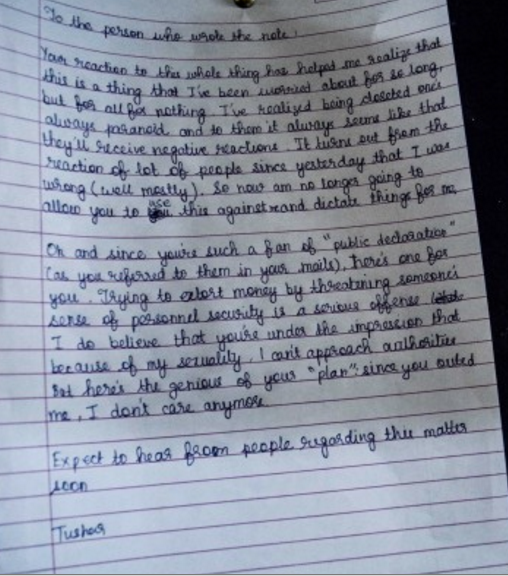 To the person who wrote the note:
Your reaction to this whole thing has helped me realize that
this is a thing that I've been worried about for so long,
but for all for nothing. I've realized being closeted one's
always paranoid and to them it always seems like that
they'll receive negative reactions. It turns out from the
reaction of lot of people since yesterday that I was
wrong (well mostly). So now am no longer going to
allow you to use this against me and dictate things for me
Oh and since you're such a fan of "public declaration"
(as you referred to them in your mails), here's one for
you. Trying to extort money by threatening someone's
sense of personnel security is a serious offense
I do believe that you're under the impression that
because of my sexuality, I can't approach authorities
But here's the genious of your "plan": since you outed
me, I don't care anymore
Expect to hear from people regarding this matter
soon
Tushar